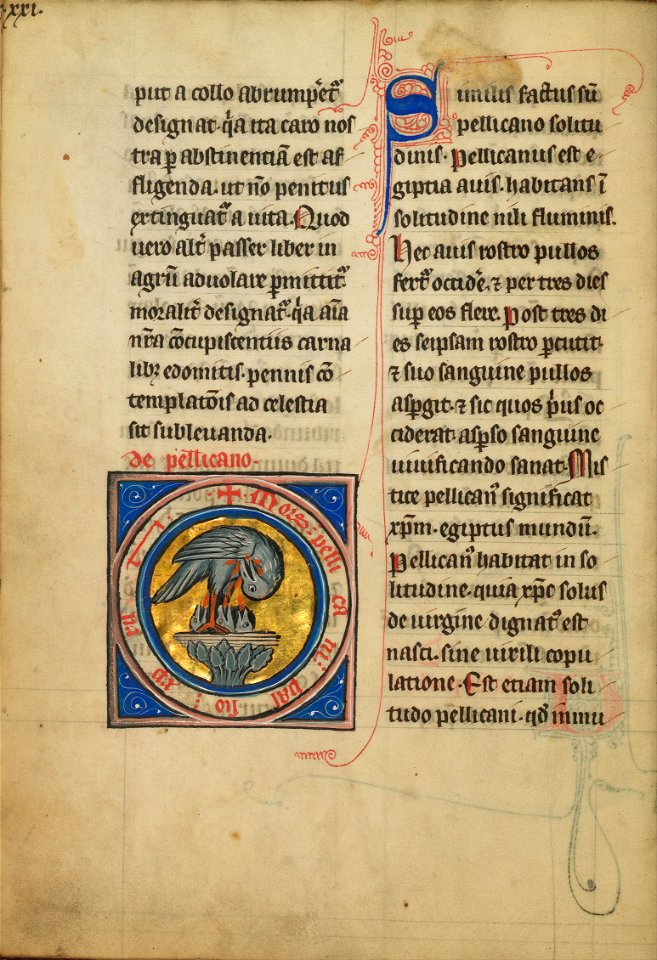 xxi.
put a collo abrumpet᷑
designat. q̇a ita caro nos
tra ꝑ abstinentiā est af
fligenda. ut nō penitus
extinguat᷑ a uita. Quod
uero alt᷑ passer liber in
agrū aduolare ꝑmittit᷑
moralit᷑ designat᷑. q̇a aīa
nr̄a cōcupiscentiis carna
libꝫ edomitis. pennis cō
templatōis ad celestia
sit subleuanda.
de pellicano.
+ Mors: pelli ca ni: pas sio:
Similis factus sū
pellicano solitu
dinis. Pellicanus est e
giptia auis. habitans ī
solitudine nili fluminis.
Hec auis rostro pullos
fert᷑ occid̓e. ⁊ per tres dies
suꝑ eos flere. Post tres di
es seipsam rostro ꝑcutit.
⁊ suo sanguine pullos
asꝑgit. ⁊ sic quos p̓us oc
ciderat. asꝑso sanguine
uiuificando sanat. Mis
tice pellican᷒ significat
xp̄m. egiptus mundū.
Pellican᷒ habitat in so
litudine. quia xp̄c solus
de uirgine dignat᷒ est
nasci. sine uirili copu
latione. Est etiam soli
tudo pellicani. qd̓ inmu